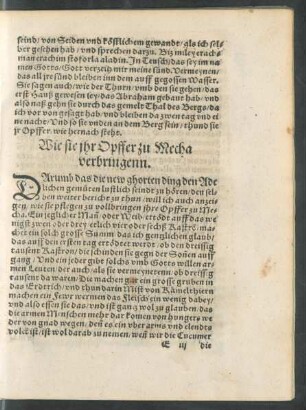 seind/ von Seiden vnd köstlichem gewandt/ als ich sel-
ber gesehen hab/ vnd sprechen darzu. Biz mileyerachs-
man erachim stoforla aladin. In Teusch/ das sey im na-
men Gotts/ Gott verzeih mir meine sünd. Vermeynen/
das all jr sünd bleiben inn den auff gegossen Wasser.
Sie sagen auch/ wie der Thurn/ vmb den sie gehen/ das
erst Hauß gewesen sey/ das Abraham gebaut hab/ vnd
also naß gehn sie durch das gemelt Thal des Bergs/ da
ich vor von gesagt hab/ vnd bleiben da zwen tag vnd ei-
ne nacht/ Vnd so sie vnden an dem Berg sein/ thund sie
jr Opffer/ wie hernach steht.
Wie sie jhr Opffer zu Mecha
verbringenn.
Darumb das die new ghörten ding den Ade-
lichen gemüten lustlich seindt zu hören/ der sel-
ben weiter bericht zu thun/ will ich auch anzei-
gen/ wie sie pflegen zu vollbringen jhre Opffer zu Me-
cha. Ein jeglicher Mañ/ oder Weib/ ertödt auff das we-
nigst zwen/ oder drey etlich vier oder sechß Kastrõ/ ma-
chen ein solch grosse Summ/ das ich gentzlichen glaub/
das auff den ersten tag ertödtet werdẽ/ ob den dreissig
tausent Kastron/ die schinden sie gegen der Soñen auff
gang/ Vnd ein jeder gibt solchs vmb Gotts willen ar-
men Leuten/ der auch/ als sie vermeynetenn/ ob dreissig
tausent da waren. Die machen gar ein grosse gruben in
das Erdtrich/ vnd thun darin Mist von Kämelthiern
machen ein Fewr/ wermen das Fleisch ein wenig dabey/
vnd also essen sie das/ vnd ist gantz wol zu glauben/ das
die armen Menschen mehr dar komen von hungers we
der von gnad wegen. deñ es ein vber arms vnd elendes
volck ist/ ist wol darab zu nemen/ weñ wir die Cucumer
E iij die